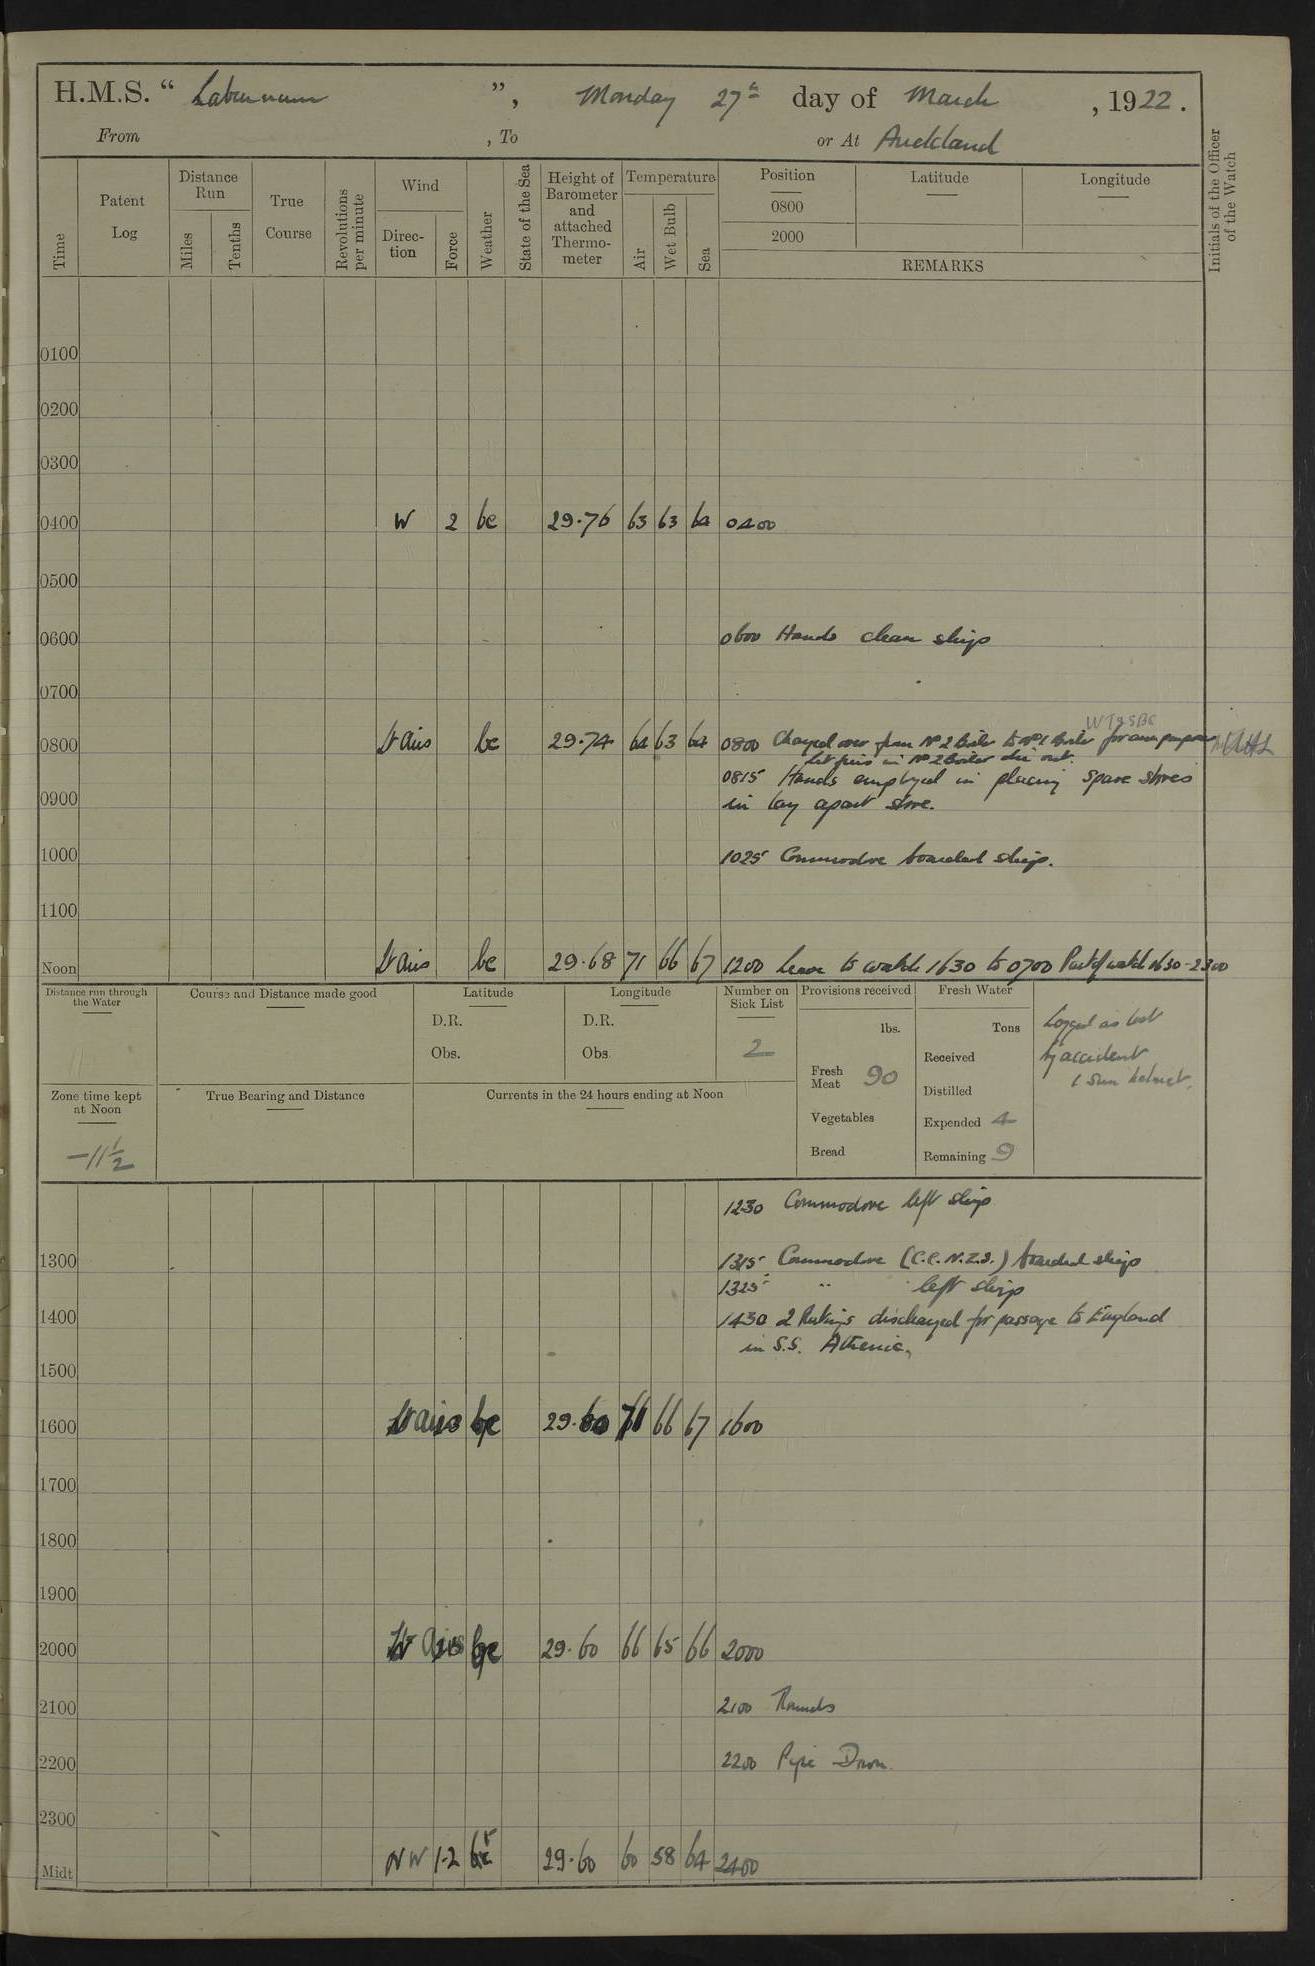 H.M.S. “ Laburnum ”, Monday 27th day of March , 1922.
From , To or At Auckland
Time
Patent Log
Distance Run
Miles
Tenths
True Course
Revolutions per minute
Wind
Direction
Force
Weather
State of the Sea
Height of Barometer and attached Thermometer
Temperature
Air
Wet Bulb
Sea
Position
0800
2000
Latitude
Longitude
REMARKS
Initials of the Officer of the Watch
0100
0200
0300
0400 W 2 bc 29.76 63 63 64 0400
0500
0600 0600 Hands clean ship
0700
W T 9 S B C
0800 Lt airs bc 29.74 64 63 64 0800 Changed over from No 2 Boiler to No 1 Boiler for aux purposes
Let fires in No 2 Boiler die out.
0815 Hands employed in placing spare stores
0900 in lay apart store.
1000 1025 Commodore boarded ship.
1100
Noon Lt airs bc 29.68 71 66 67 1200 Leave to watch 1630 to 0700 Part of watch 1630-2300
Distance run through the Water
Course and Distance made good
Latitude
D.R.
Obs.
Longitude
D.R.
Obs.
Number on Sick List
2
Provisions received
lbs.
Fresh Meat 90
Vegetables
Bread
Fresh Water
Tons
Received
Distilled
Expended 4
Remaining 9
Logged as lost
by accident
1 Sun helmet.
Zone time kept at Noon
-11 1/2
True Bearing and Distance
Currents in the 24 hours ending at Noon
1230 Commodore left ship
1300 1315 Commodore (C.C.N.Z.S.) boarded ship
1325 " left ship
1400 1430 2 Ratings discharged for passage to England
in S.S. Athenic.
1500
1600 Lt airs bc 29.60 71 66 67 1600
1700
1800
1900
2000 Lt airs bc 29.60 66 65 66 2000
2100 2100 Rounds
2200 2200 Pipe Down.
2300
Midt NW 1-2 bc 29.60 60 58 64 2400